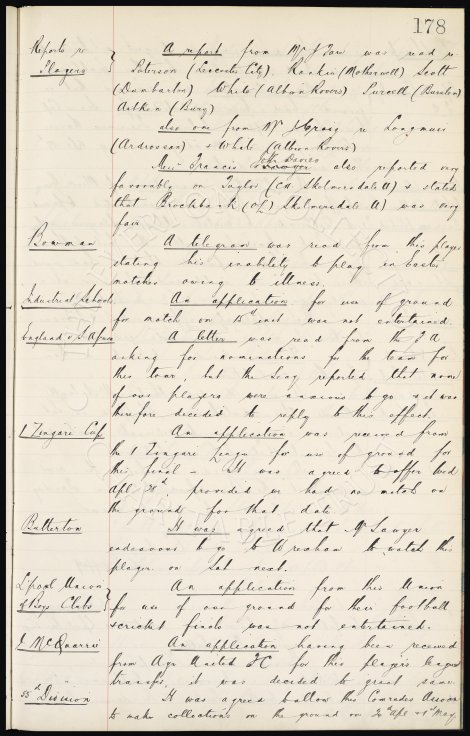 178
Reports re A report from Mr J Faw was read re
Players Paterson (Leicester City), Rankin (Motherwell) Scott
(Dumbarton) White (Albion Rovers) Purcell (Burnton)
Aitken (Bury)
also one from Mr J Craig re Longmuir
(Ardrossan) & White (Albion Rovers)
Mess Francis John Davies also reported very
favorably on Taylor (CH Skelmersdale U) & stated
that Brocklebank (OL) Skelmersdale U) was very
fair.
Bowman A telegram was read from this player
stating his inability to play in Easter
matches owing to illness.
Industrial Schools An application for use of ground
for match on 15th inst was not entertained.
England v S. Africa A letter was read from the F A
asking for nominations for the team for
this tour, but the Secy reported that none
of our players were anxious to go & it was
therefore decided to reply to this effect.
I Zingari Cup An application was received from
the I Zingari League for use of ground for
this final - It was agreed to offer Wed
Apl provided we had no match on
the ground for that date.
Butterton It was agreed that Mr Sawyer
endeavour to go to Wrexham to watch this
player on Sat next.
L'pool Union An application from this Union
of Boys Clubs for use of our ground for their football
& cricket finals was not entertained.
J McQuarrie An application having been received
from Ayr United FC for this player's league
transfer, it was decided to grant same.
55th Division It was agreed to allow this Comrades Assocn
to make collections on the ground on Apl & 1st May.